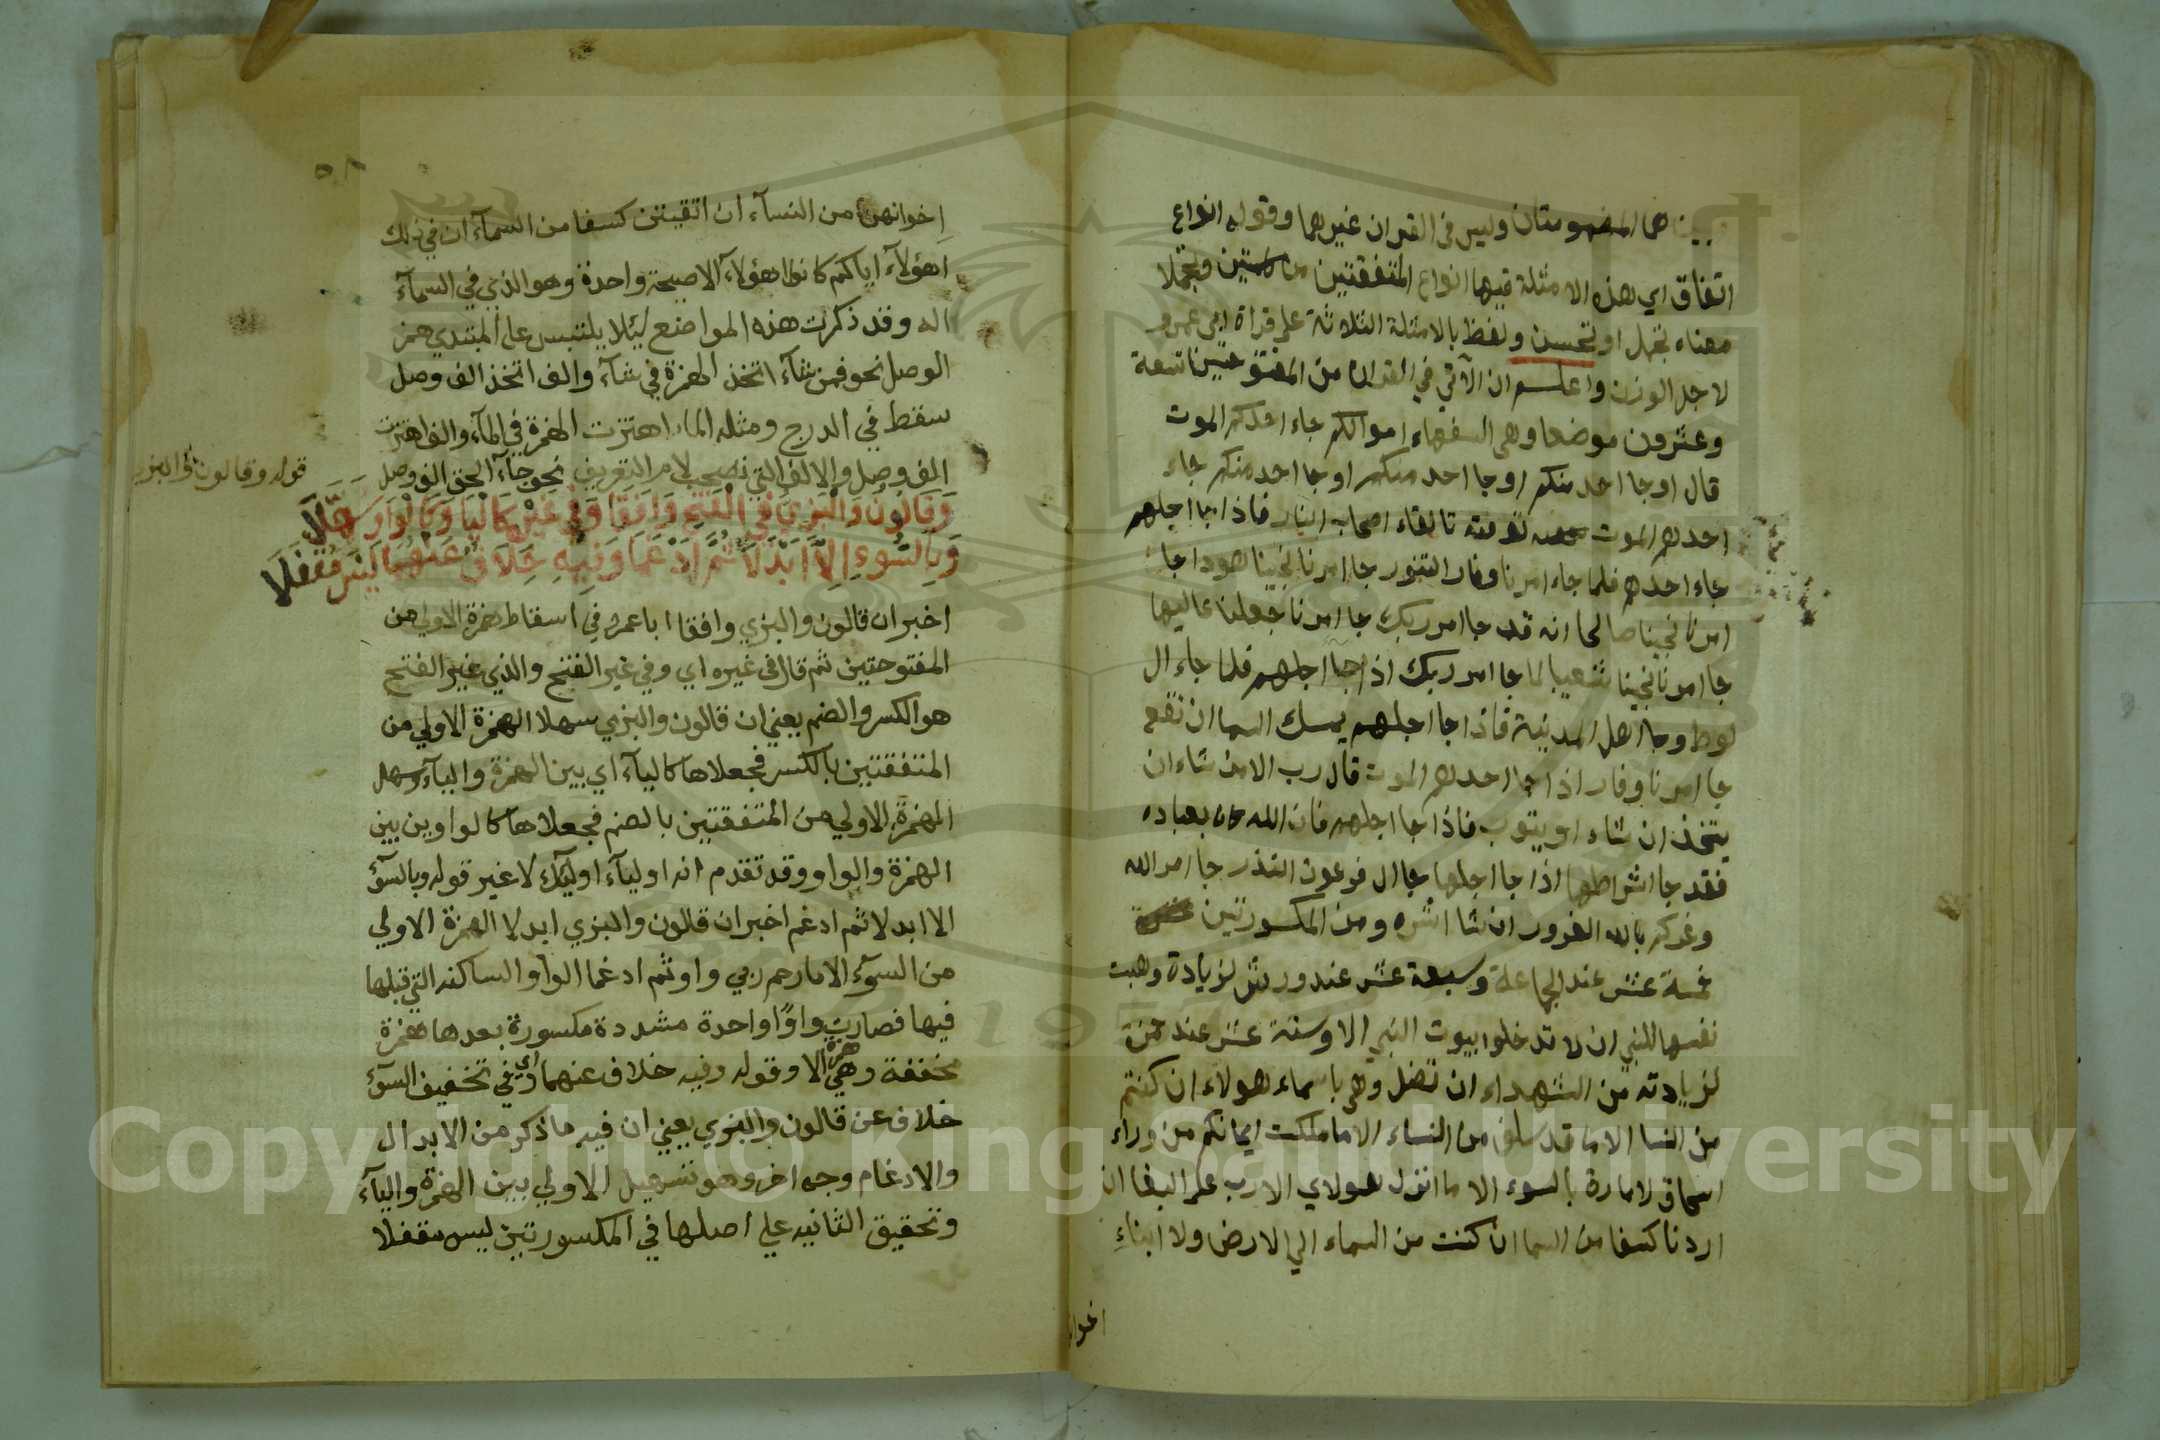 هما المضمومتان وليس في القران غيرهما وقوله انواع
اتفاق اي هذه الامثلة فيها انواع المتفقتين من كلمتين وتجملا
معناه تجمل او تحسن ولفظ بالامثلة الثلاثة على قراة ابي عمرو
لاجل الوزن واعلم ان الآتي في القران من المفتوحتين تسعة
وعشرون موضعا وهي السفهاء اموالكم جاء احدكم الموت
قال او جا احد منكم او جا احد منكم او جا احد منكم جاء
احدهم الموت توفته تلقاء اصحاب النار فاذا جا اجلهم
جاء احدهم فلما جاء امرنا وفار التنور جا امرنا نجينا هودا جا
امرنا نجينا صالحا انه قد جا امر ربك جا امرنا جعلنا عاليها
جا امرنا نجينا شعيبا لما جا امر ربك اذا جاا اجلهم فلما جاء ال
لوط وجا اهل المدينة فاذا جا اجلهم يمسك السما ان تقع
جا امرنا وفار اذا جا احدهم الموت قال رب الا من شاء ان
يتخذ ان شاء او يتوب فاذا جا اجلهم فان الله كان بعباده
فقد جا اشراطها اذا جا اجلها جا ال فرعون النذر جا امر الله
وغركم بالله الغرور ان شا انشره ومن المكسورتين
خمسة عشر عند الجماعة وسبعة عشر عند ورش لزيادة وهبت
نفسها للنبي ان لا تدخلوا بيوت النبي الا وستة عشر عند حمزة
لزيادته من الشهداء ان تضل وهي باسماء هولاء ان كنتم
من النسا الا ما قد سلف من النساء الا ما ملكت ايمانكم من وراء
اسحاق لامارة بالسوء الا ما انزل هولاي الا رب على البغا ان
اردنا كسفا من السما ان كنت من السماء الي الارض ولا ابناءِ
اخوا
٥٨
اِخوانهن من النسآء ان اتقيتن كسفا من السمآء ان في ذلك
اهؤلآء اياكم كانوا هؤلاء الا صيحة واحدة وهو الذي في السمآء
اله وقد ذكرت هذه المواضع ليئلا يلتبس على المبتدي همز
الوصل نحو فمن شآء اتخذ الهمزة في شآء والف اتخذ الف وصل
سقط في الدرج ومثله الماء اهتزت الهمزة في المآء والف اهتزت
الف وصل والالف التي تصحب لام التعريف نحو جآء الحق الف وصل
وَقَالُونُ وَالْبَزِّيُ فِي الْفَتْحِ وَافَقَا وَفِي غَيْرِهِ كَالْيَا وَكَالْوَاوِ سَهَّلَا
وَبِالسُّوءِ اِلَّا اَبْدَلَا ثُمَّ اَدْغَمَا وَفِيهِ خِلَافٌ عَنْهُمَا لَيْسَ مُقْفَلَا
قوله وقالون والبزي
اخبر ان قالون والبزي وافقا ابا عمرو في اسقاط همزة الاولي من
المفتوحتين ثم قال في غيره اي وفي غير الفتح والذي غير الفتح
هو الكسر والضم يعني ان قالون والبزي سهلا الهمزة الاولي من
المتفقتين بالكسر فجعلاها كاليآء اي بين الهمزة واليآء وسهلا
الهمزة الاولي من المتفقتين بالضم فجعلاها كالواو بين بين
الهمزة والواو وقد تقدم انه اوليآء اوليك لا غير قوله وبالسوء
الا ابدلا ثم ادغم اخبر ان قالون والبزي ابدلا الهمزة الاولي
من السوٓء الا ما رحم ربي واو ثم ادغما الواو الساكنه التي قبلها
فيها فصارت واوًا واحدة مشددة مكسورة بعدها همزة
محققة وهي همزة الا وقوله وفيه خلاف عنهما اي وفي تخفيف السوء
خلاف عن قالون والبزي يعني ان فيه ما ذكر من الابدال
والادغام وجه اخر وهو تسهيل الاولي بين الهمزة واليآء
وتحقيق الثانيه علي اصلها في المكسورتين ليس مقفلا
Copyright © King Saud University
1957